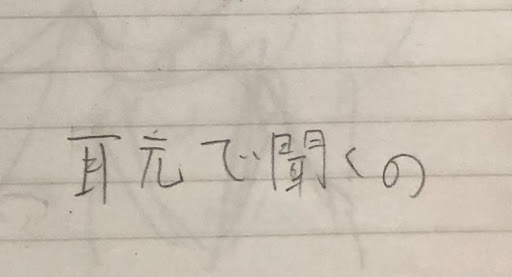 耳元で聞くの